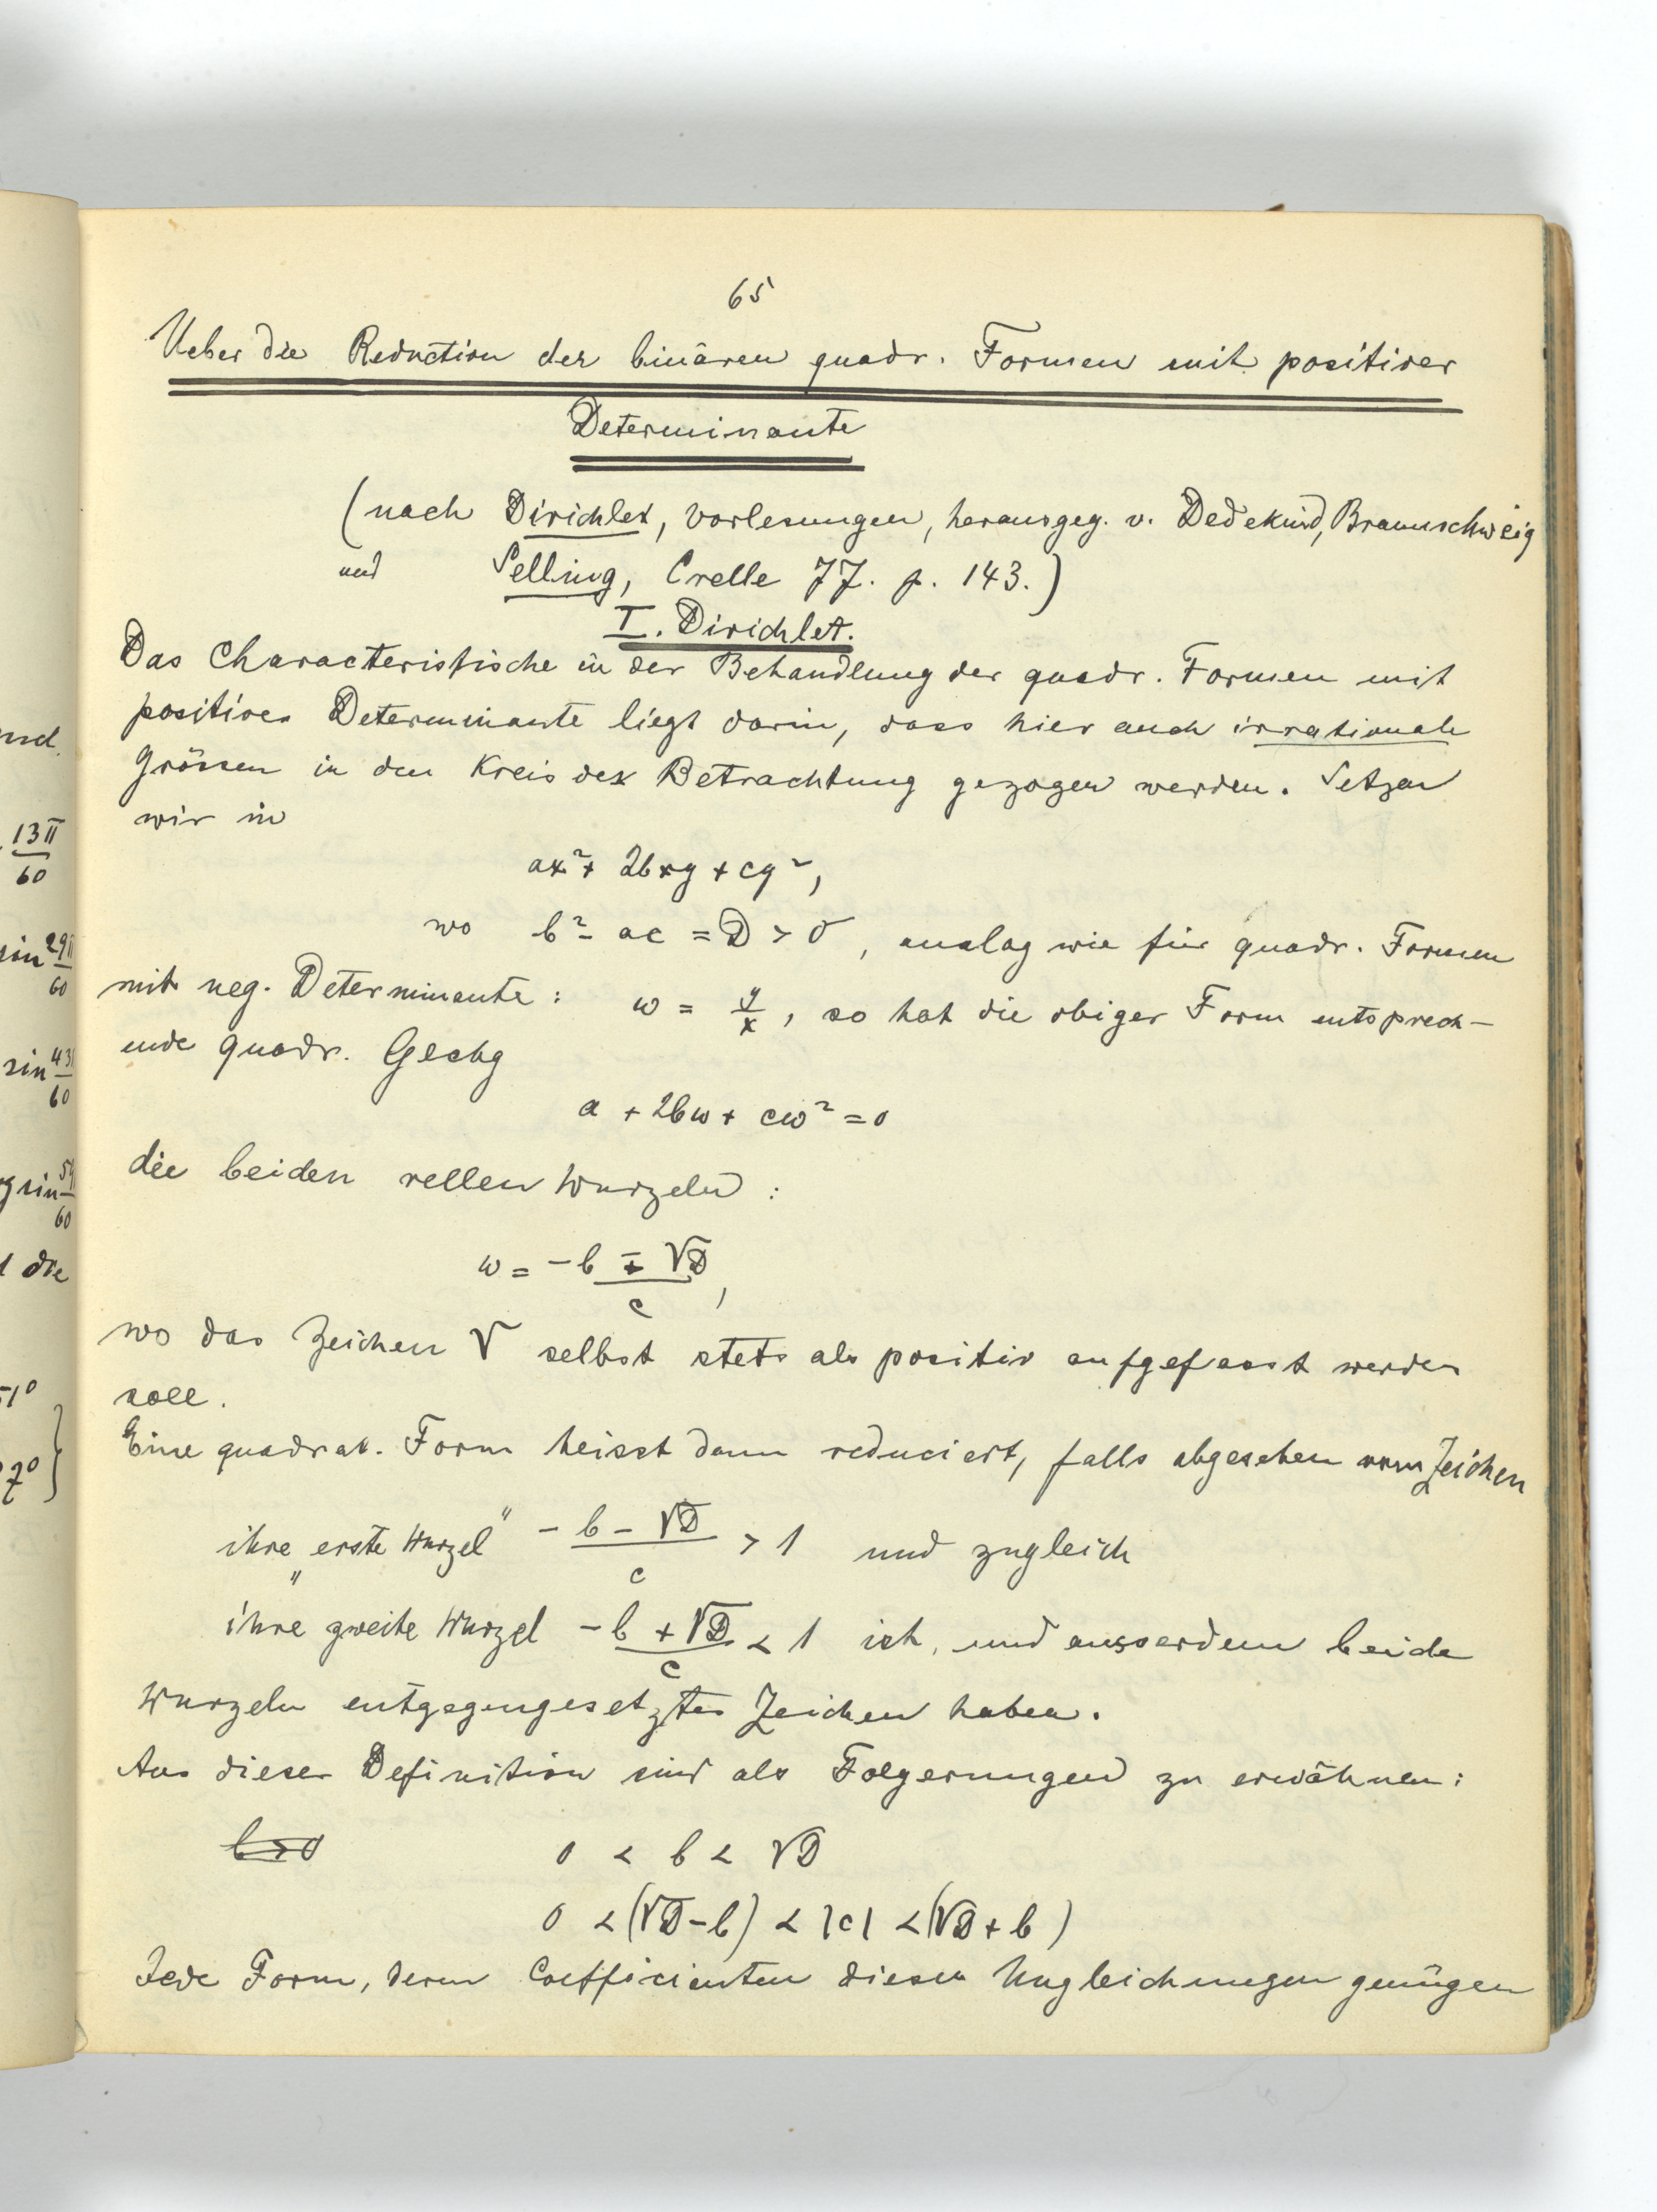 65
Ueber die Reduction der binären quadr. Formen mit positiver
Determinante
(nach Dirichlet, Vorlesungen, herausgeg. v. Dedekind, Braunschweig
und Selling, Crelle 77. p. 143.)
I. Dirichlet.
Das Characteristische in der Behandlung der quadr. Formen mit
positiver Determinante liegt darin, dass hier auch irrationale
Grössen in den Kreis der Betrachtung gezogen werden. Setzen
wir in
ax² + 2bxy + cy²,
wo b² - ac = D > 0, analog wie für quadr. Formen
mit neg. Determinante: ω = y/x, so hat die obiger Form entsprech-
ende quadr. Glechg
a + 2bω + cω² = 0
die beiden rellen Wurzeln:
ω = (-b ∓ √D)/c,
wo das Zeichen √ selbst stets als positiv aufgefasst werden
soll.
Eine quadrat. Form heisst dann reduciert, falls abgesehen vom Zeichen
ihre "erste Wurzel" (-b - √D)/c > 1 und zugleich
ihre "zweite Wurzel (-b + √D)/c < 1 ist, und ausserdem beide
Wurzeln entgegengesetztes Zeichen haben.
Aus dieser Definition sind als Folgerungen zu erwähnen:
b>0 0 < b < √D
0 < (√D-b) < |c| < (√D+b)
Jede Form, deren Coefficienten diesen Ungleichungen genügen
nd.
13π/60
sin 29π/60
sin 43π/60
sin 60
die
51°
7° }